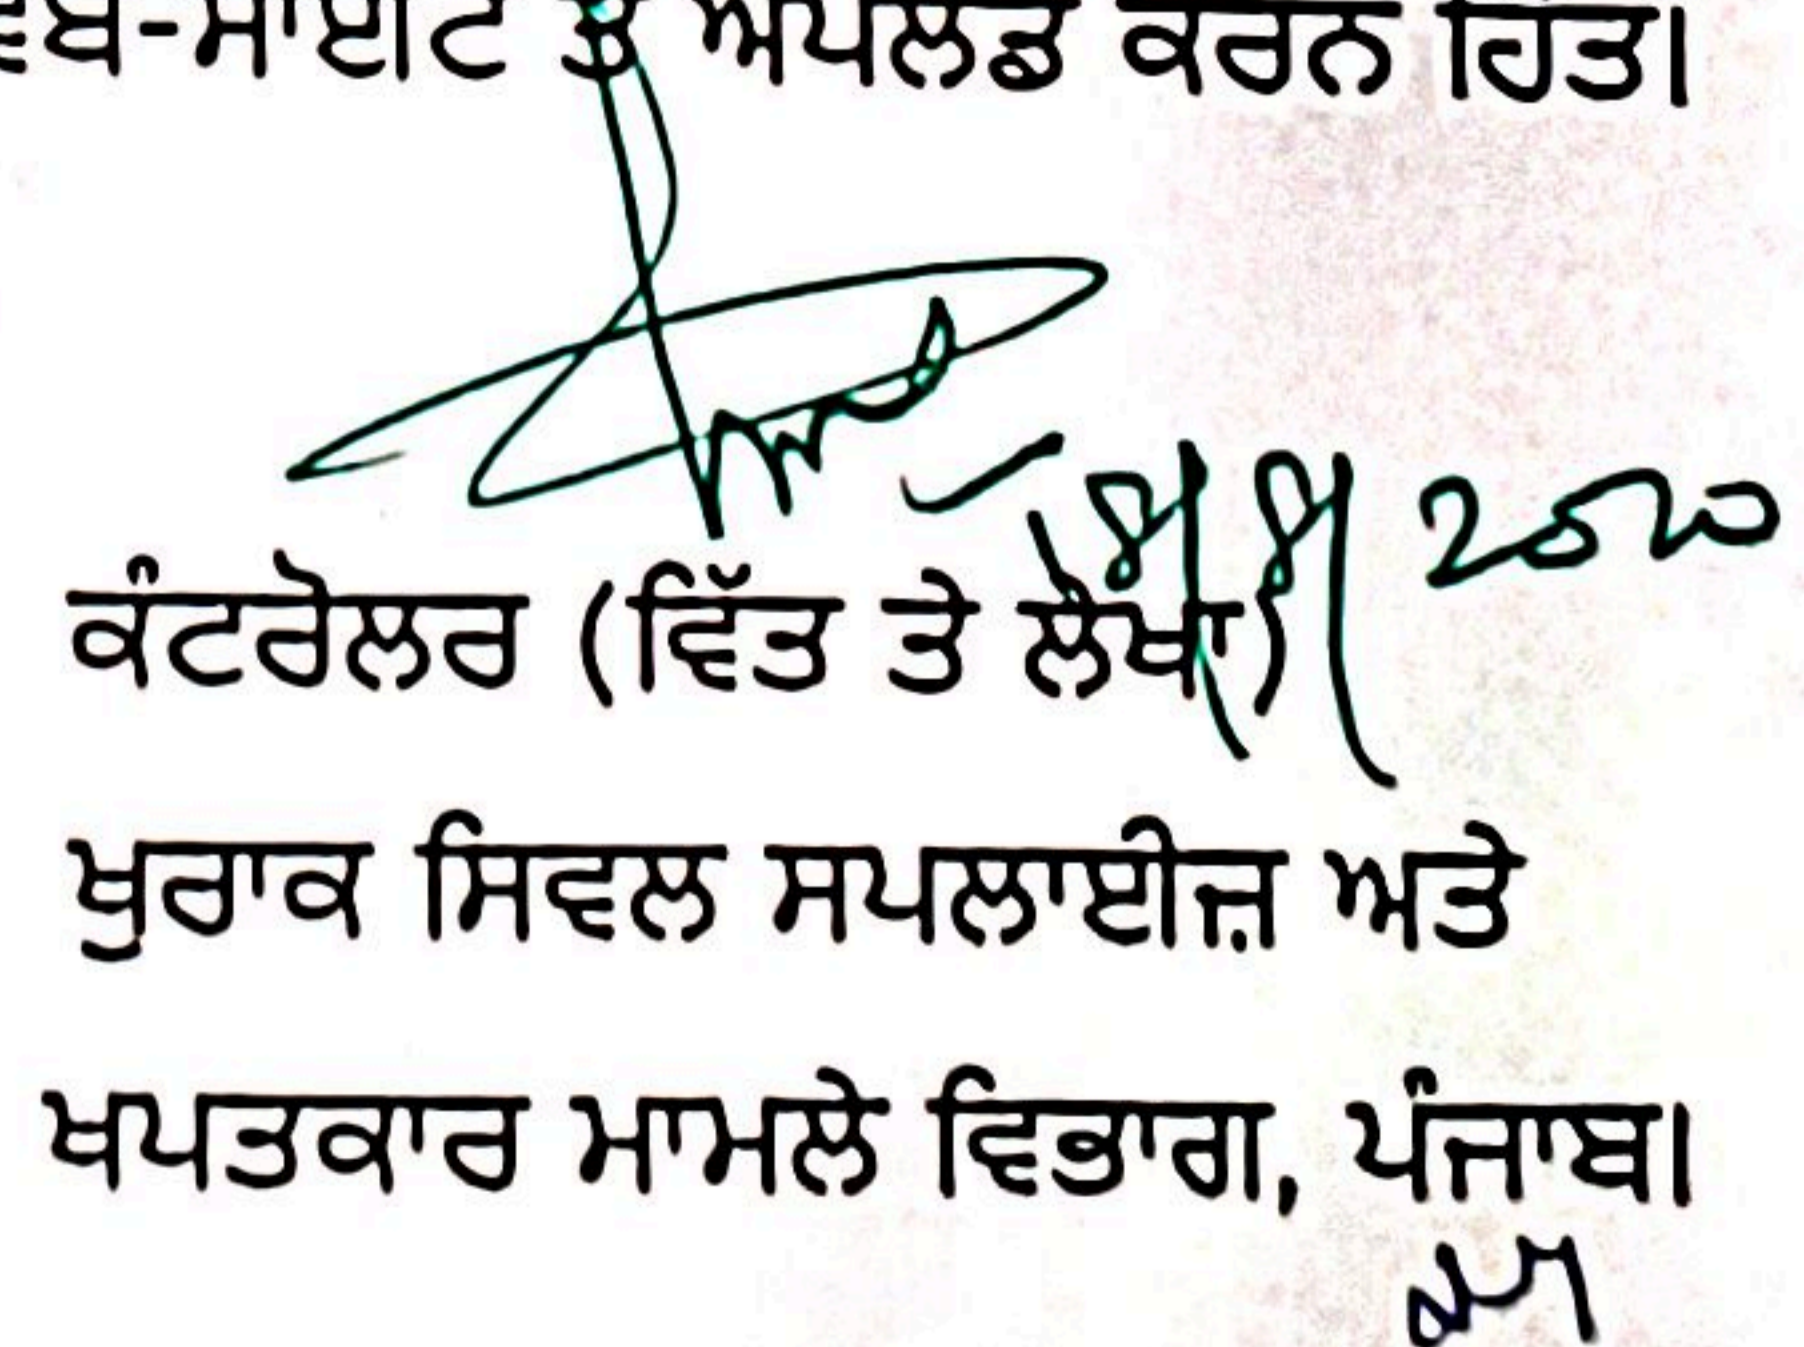 ਵੈਬ-ਸਾਈਟ ਤੇ ਅਪਲੋਡ ਕਰਨ ਹਿੱਤ।
ਕੰਟਰੋਲਰ (ਵਿੱਤ ਤੇ ਲੇਖਾ)
ਖੁਰਾਕ ਸਿਵਲ ਸਪਲਾਈਜ਼ ਅਤੇ
ਖਪਤਕਾਰ ਮਾਮਲੇ ਵਿਭਾਗ, ਪੰਜਾਬ।